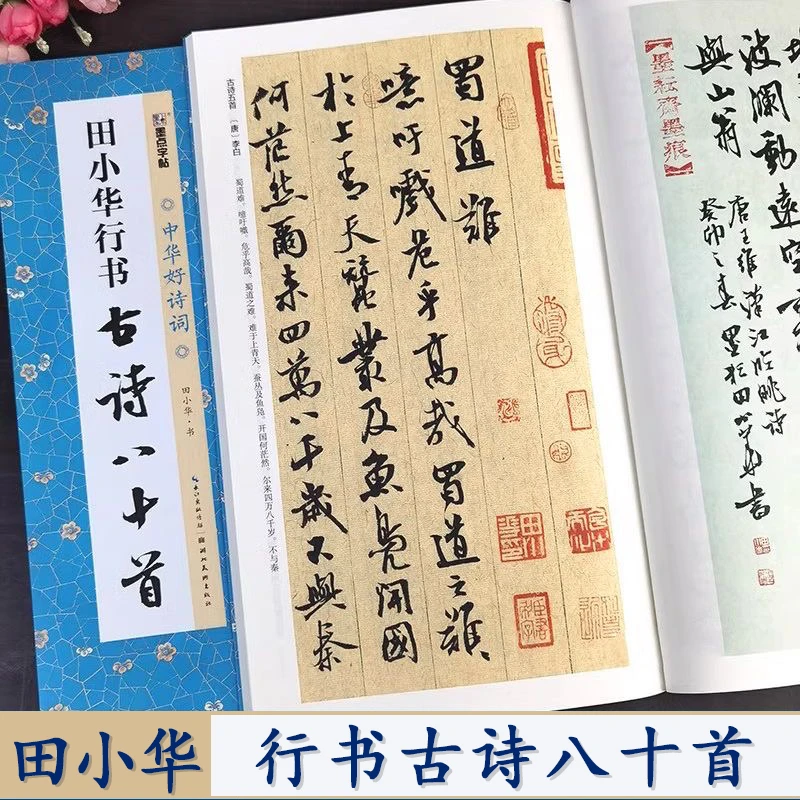 墨点字帖
田小华行书
中华好诗词
古诗八十首
田小华·书
长江出版传媒
湖北美术出版社
古诗五首 〔唐〕李白
蜀道难。噫吁嚱。危乎高哉。蜀道之难。难于上青天。蚕丛及鱼凫。开国何茫然。尔来四万八千岁。不与秦
蜀道難
噫吁戲危乎高哉蜀道之難
於上青天蠶叢及魚鳧開國
何茫然爾来四萬八千歲不與秦
波瀾動遠空
與山翁
唐王維漢江临眺詩
癸卯之春墨耘田小華書
【墨耘齋墨痕】
田小华
行书古诗八十首